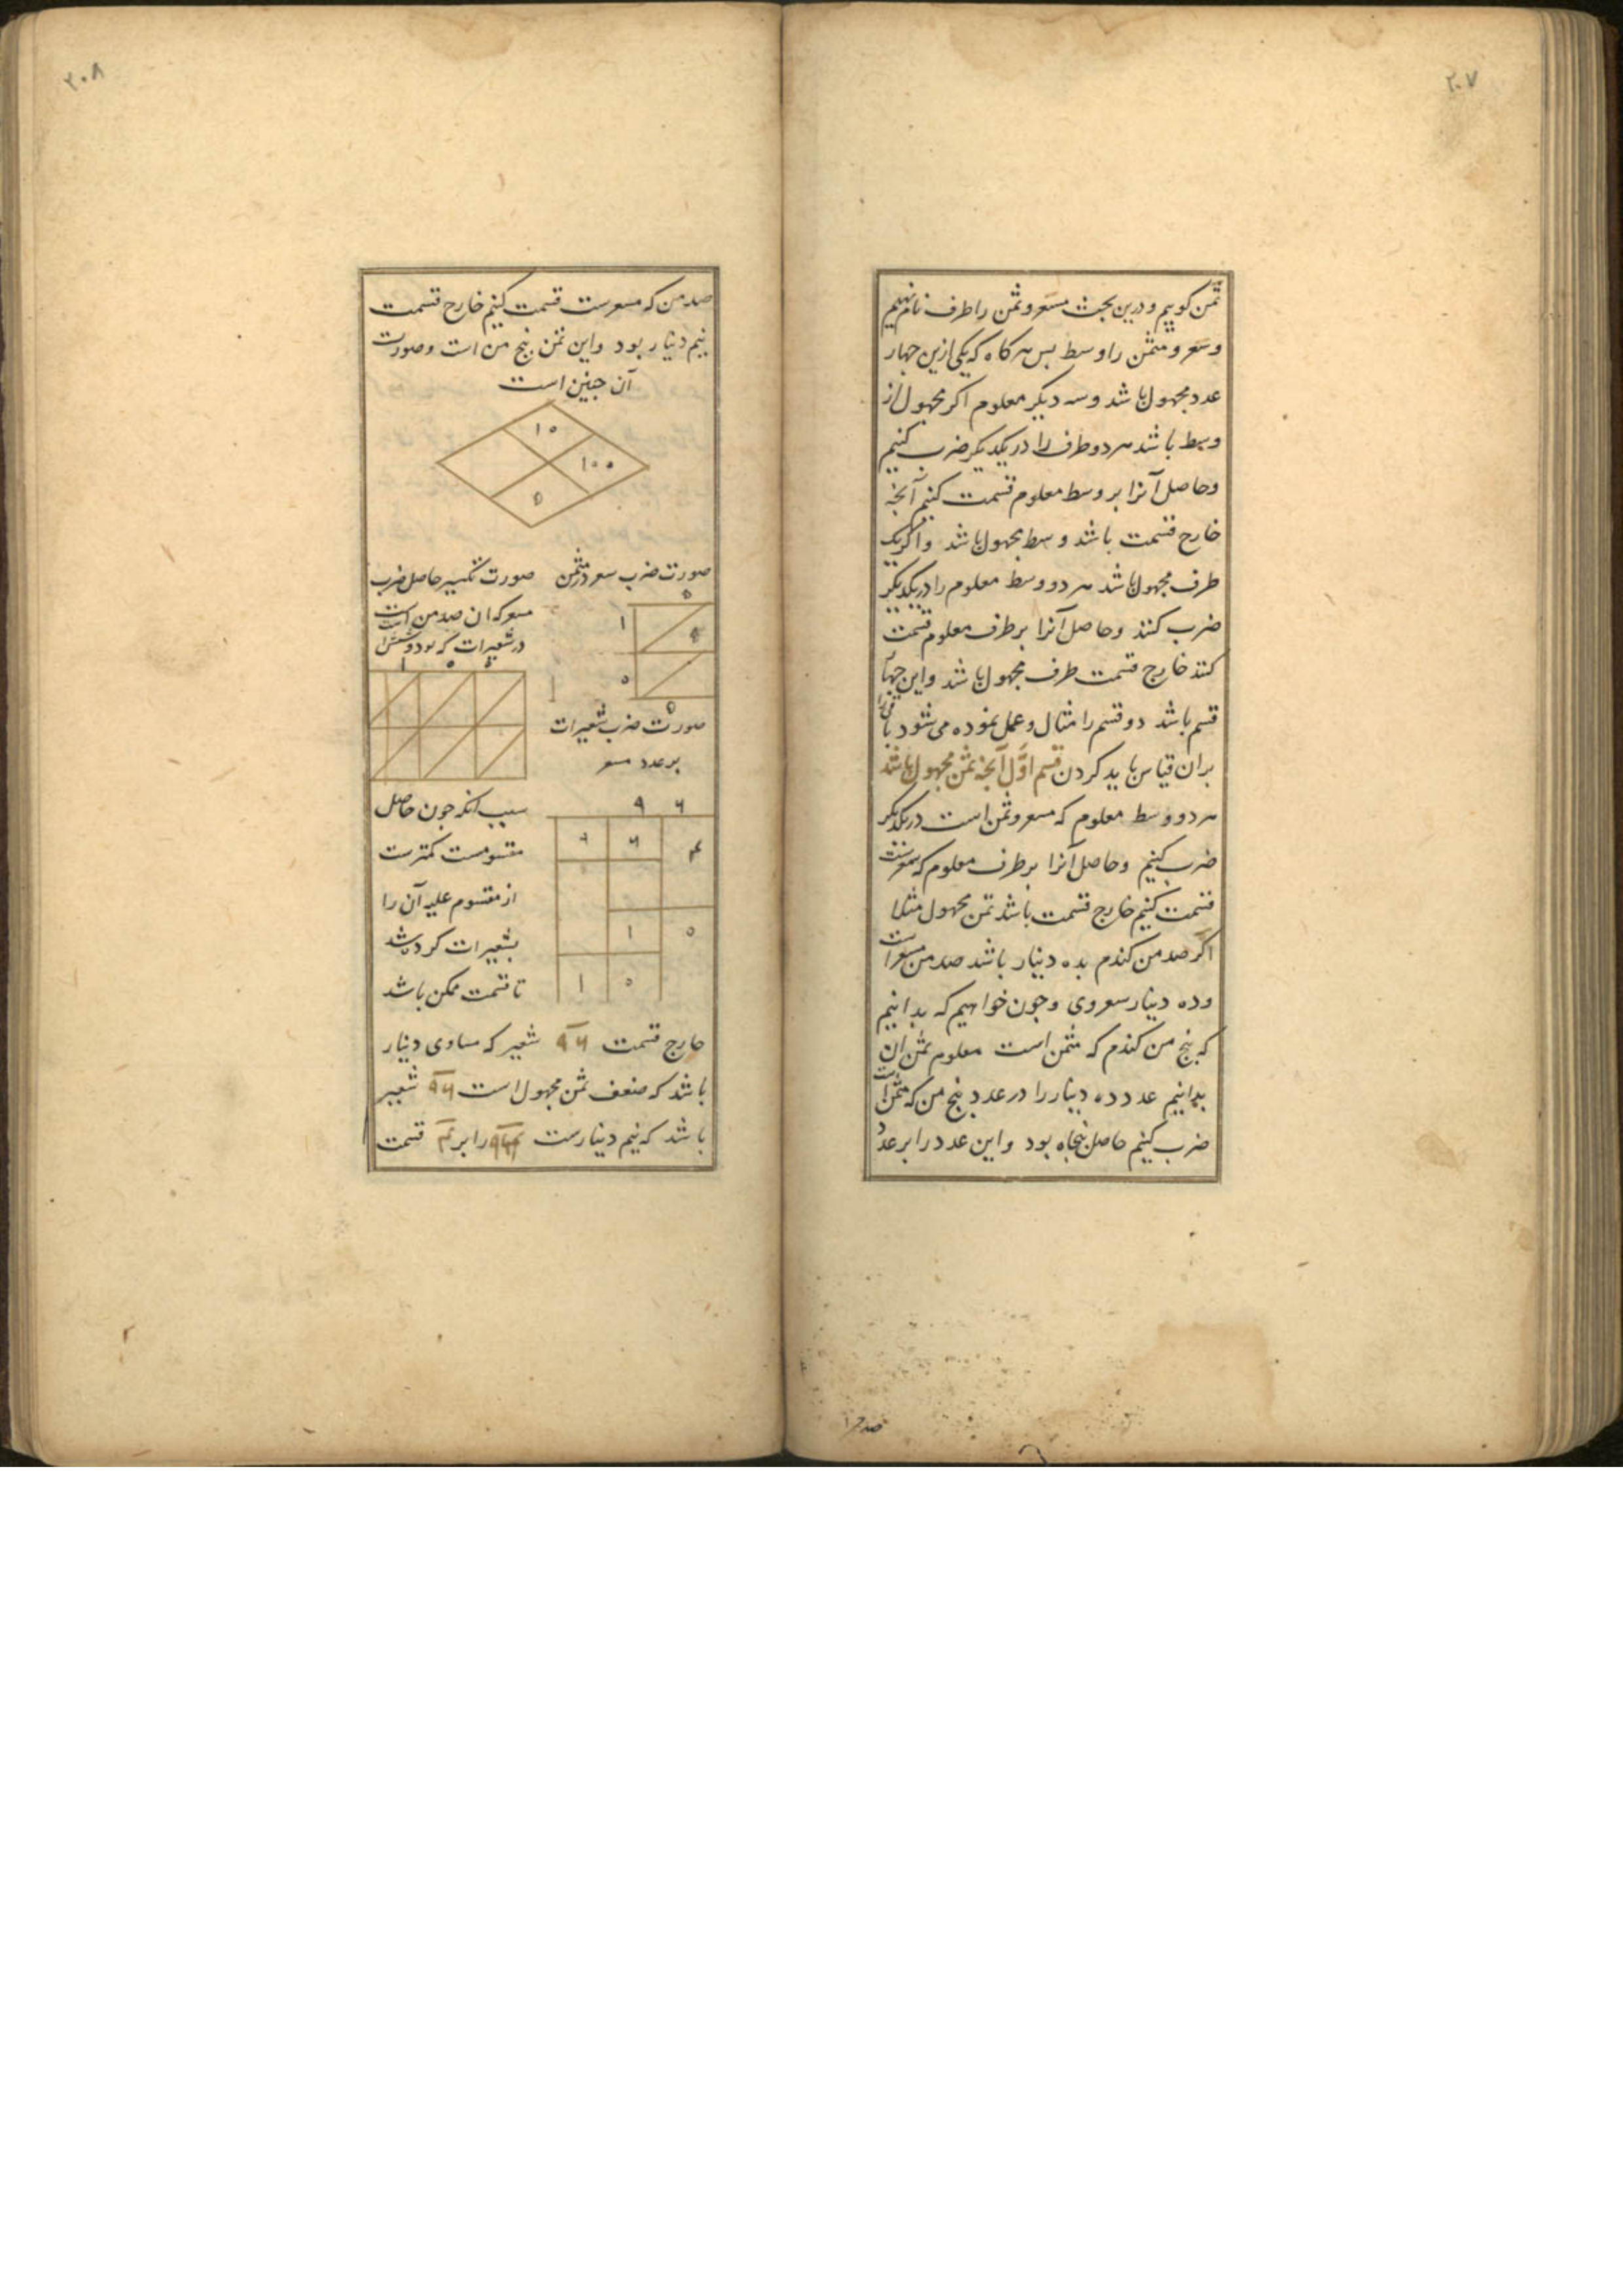 ۲۰۷
ثمن کوییم و درین بحث مسعر و ثمن را طرف نام نهیم
و سعر و مثمن را وسط بس هر کاه که یکی ازین جهار
عدد مجهول باشد و سه دیکر معلوم اکر مجهول از
وسط باشد هر دو طرف را در یکدیکر ضرب کنیم
و حاصل آنرا بر وسط معلوم قسمت کنیم آنجه
خارج قسمت باشد وسط مجهول باشد و اکر یک
طرف مجهول باشد هر دو وسط معلوم را در یکدیکر
ضرب کنند و حاصل آنرا بر طرف معلوم قسمت
کنند خارج قسمت طرف مجهول باشد و این جهار
قسم باشد دو قسم را مثال و عمل نموده می شود باقی را
بران قیاس باید کردن قسم اوّل آنجه ثمن مجهول باشد
هر دو وسط معلوم که سعر و مثمن است در یکدیکر
ضرب کنیم و حاصل آنرا بر طرف معلوم که مسعرست
قسمت کنیم خارج قسمت باشد ثمن مجهول مثلا
اکر صد من کندم بده دینار باشد صد من مسعر است
و ده دینار سعر وی و جون خواهیم که بدانیم
که بنج من کندم که مثمن است معلوم ثمن آن
بدانیم عدد ده دینار را در عدد بنج من که مثمن است
ضرب کنیم حاصل بنجاه بود و این عدد را بر عدد
۲۰۸
صد من که مسعرست قسمت کنیم خارج قسمت
نیم دینار بود و این ثمن بنج من است و صورت
آن جنین است
۱۰
۱۰۰
۵
صورت ضرب سعر در مثمن
۵
۱
۵
۰
۵
صورت ضرب شعیرات
بر عدد مسعر
صورت تکسیر حاصل ضرب
مسعر که ان صد من است
در شعیرات که نود و شش است
۱ ۰ ۵
۹ ۶
۶ ۴
۱ ۰
۱ ۰
سبب آنکه جون حاصل
مقسومست کمترست
از مقسوم علیه آن را
بشعیرات کرده شد
تا قسمت ممکن باشد
خارج قسمت ۹۶ شعیر که مساوی دینار
باشد که ضعف ثمن مجهول است ۹۶ شعیر
باشد که نیم دینارست را بر قسمت